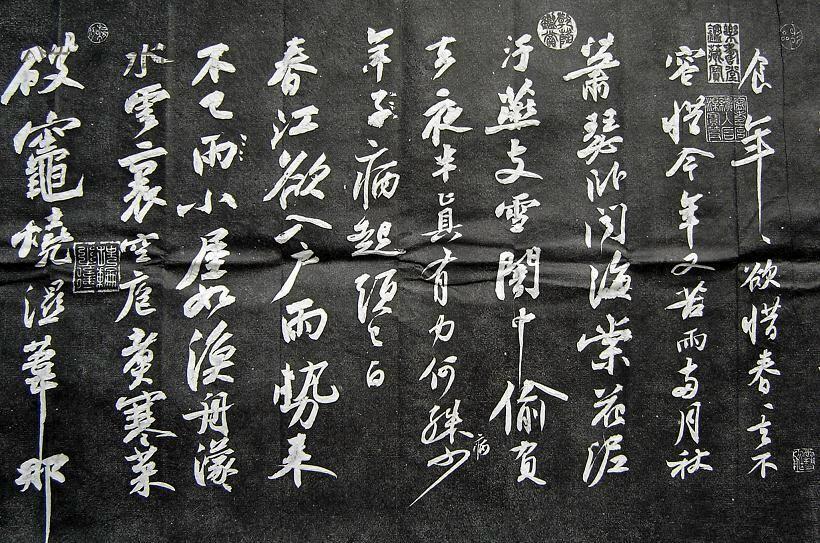 食年、欲惜春、去不
容惜今年又苦雨兩月秋
蕭瑟卧聞海棠花泥
汙燕支雪闇中偷負
去夜半真有力何殊病少
年子病起頭已白
春江欲入户雨勢來
不已雨小屋如漁舟濛
水雲裏空庖煮寒菜
破竈燒濕葦那